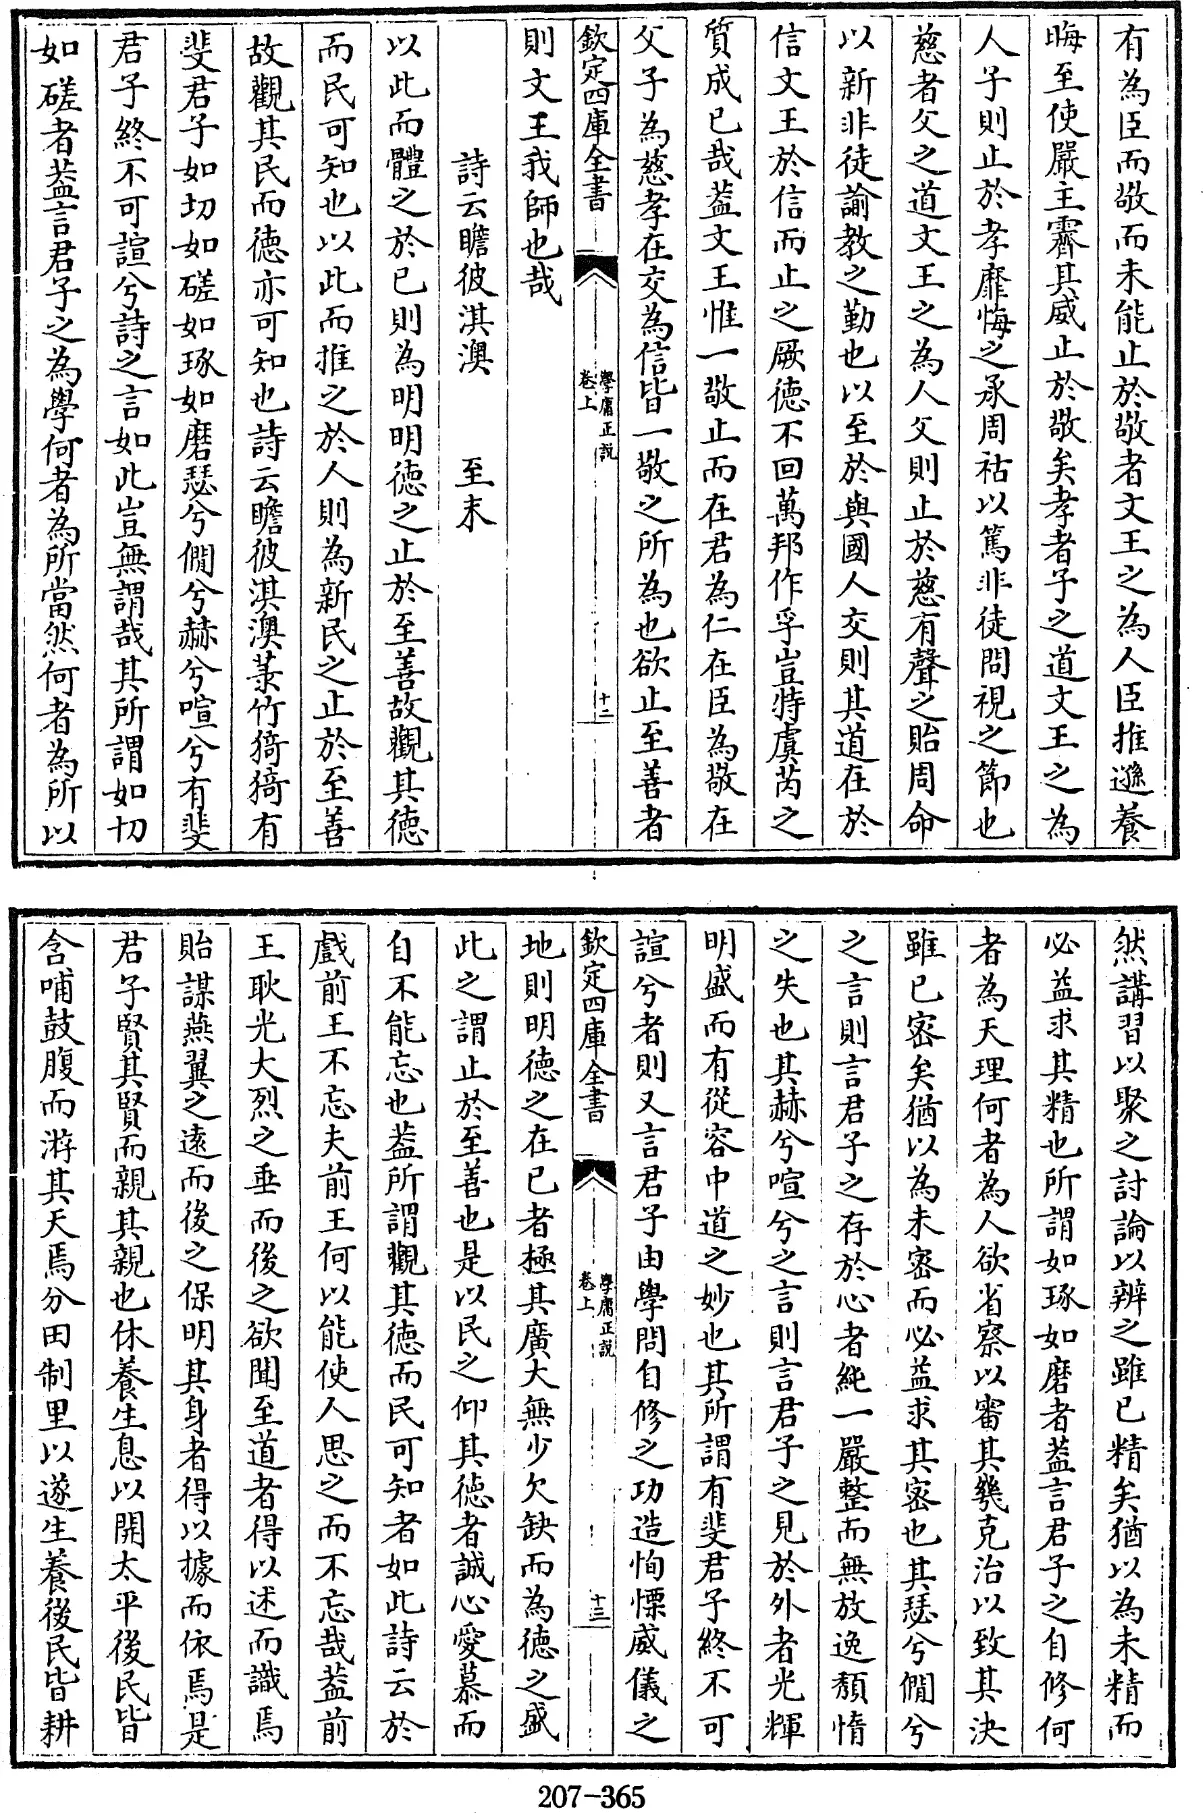 有為臣而敬而未能止於敬者文王之為人臣推遜養
晦至使嚴主霽其威止於敬矣孝者子之道文王之為
人子則止於孝靡悔之承周祜以篤非徒問視之節也
慈者父之道文王之為人父則止於慈有聲之貽周命
以新非徒諭教之勤也以至於與國人交則其道在於
信文王於信而止之厥德不回萬邦作孚豈特虞芮之
質成已哉葢文王惟一敬止而在君為仁在臣為敬在
父子為慈孝在交為信皆一敬之所為也欲止至善者
欽定四庫全書 學庸正說 卷上 十二
則文王我師也哉
詩云瞻彼淇澳 至末
以此而體之於已則為明明德之止於至善故觀其德
而民可知也以此而推之於人則為新民之止於至善
故觀其民而德亦可知也詩云瞻彼淇澳菉竹猗猗有
斐君子如切如磋如琢如磨瑟兮僩兮赫兮喧兮有斐
君子終不可諠兮詩之言如此豈無謂哉其所謂如切
如磋者葢言君子之為學何者為所當然何者為所以
然講習以聚之討論以辨之雖已精矣猶以為未精而
必益求其精也所謂如琢如磨者葢言君子之自修何
者為天理何者為人欲省察以審其幾克治以致其決
雖已密矣猶以為未密而必益求其密也其瑟兮僩兮
之言則言君子之存於心者純一嚴整而無放逸頽惰
之失也其赫兮喧兮之言則言君子之見於外者光輝
明盛而有從容中道之妙也其所謂有斐君子終不可
諠兮者則又言君子由學問自修之功造恂慄威儀之
欽定四庫全書 學庸正說 卷上 十三
地則明德之在已者極其廣大無少欠缺而為德之盛
此之謂止於至善也是以民之仰其德者誠心愛慕而
自不能忘也葢所謂觀其德而民可知者如此詩云於
戲前王不忘夫前王何以能使人思之而不忘哉葢前
王耿光大烈之垂而後之欲聞至道者得以述而識焉
貽謀燕翼之遠而後之保明其身者得以據而依焉是
君子賢其賢而親其親也休養生息以開太平後民皆
含哺鼓腹而游其天焉分田制里以遂生養後民皆耕
207-365